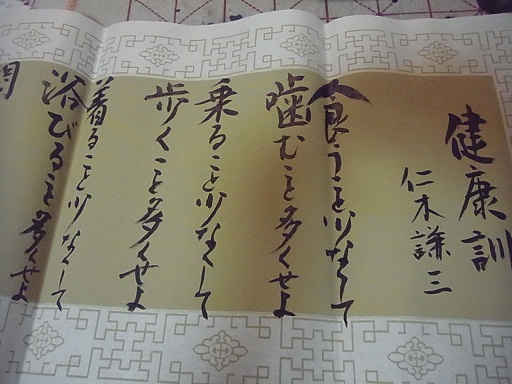 健康訓
仁木謙三
食うこと少なくして
噛むこと多くせよ
乗ること少なくして
歩くこと多くせよ
着ること少なくして
浴びること多くせよ